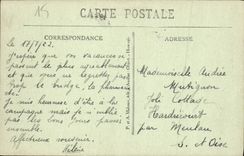 CARTE POSTALE
CORRESPONDANCE
ADRESSE
le 18/7/22.
J'espère que vos vacances se
passent le plus agréablement
et que vous ne regrettez pas
trop le bridge, le
Je suis heureuse d'être à la
campagne mais je n'oublie
pas les bons jours passés
ensemble.
Affectueux souvenir.
Mademoiselle Andrée
Mutignon
Joli Cottage
Hardricourt
par Meulan
S. et Oise